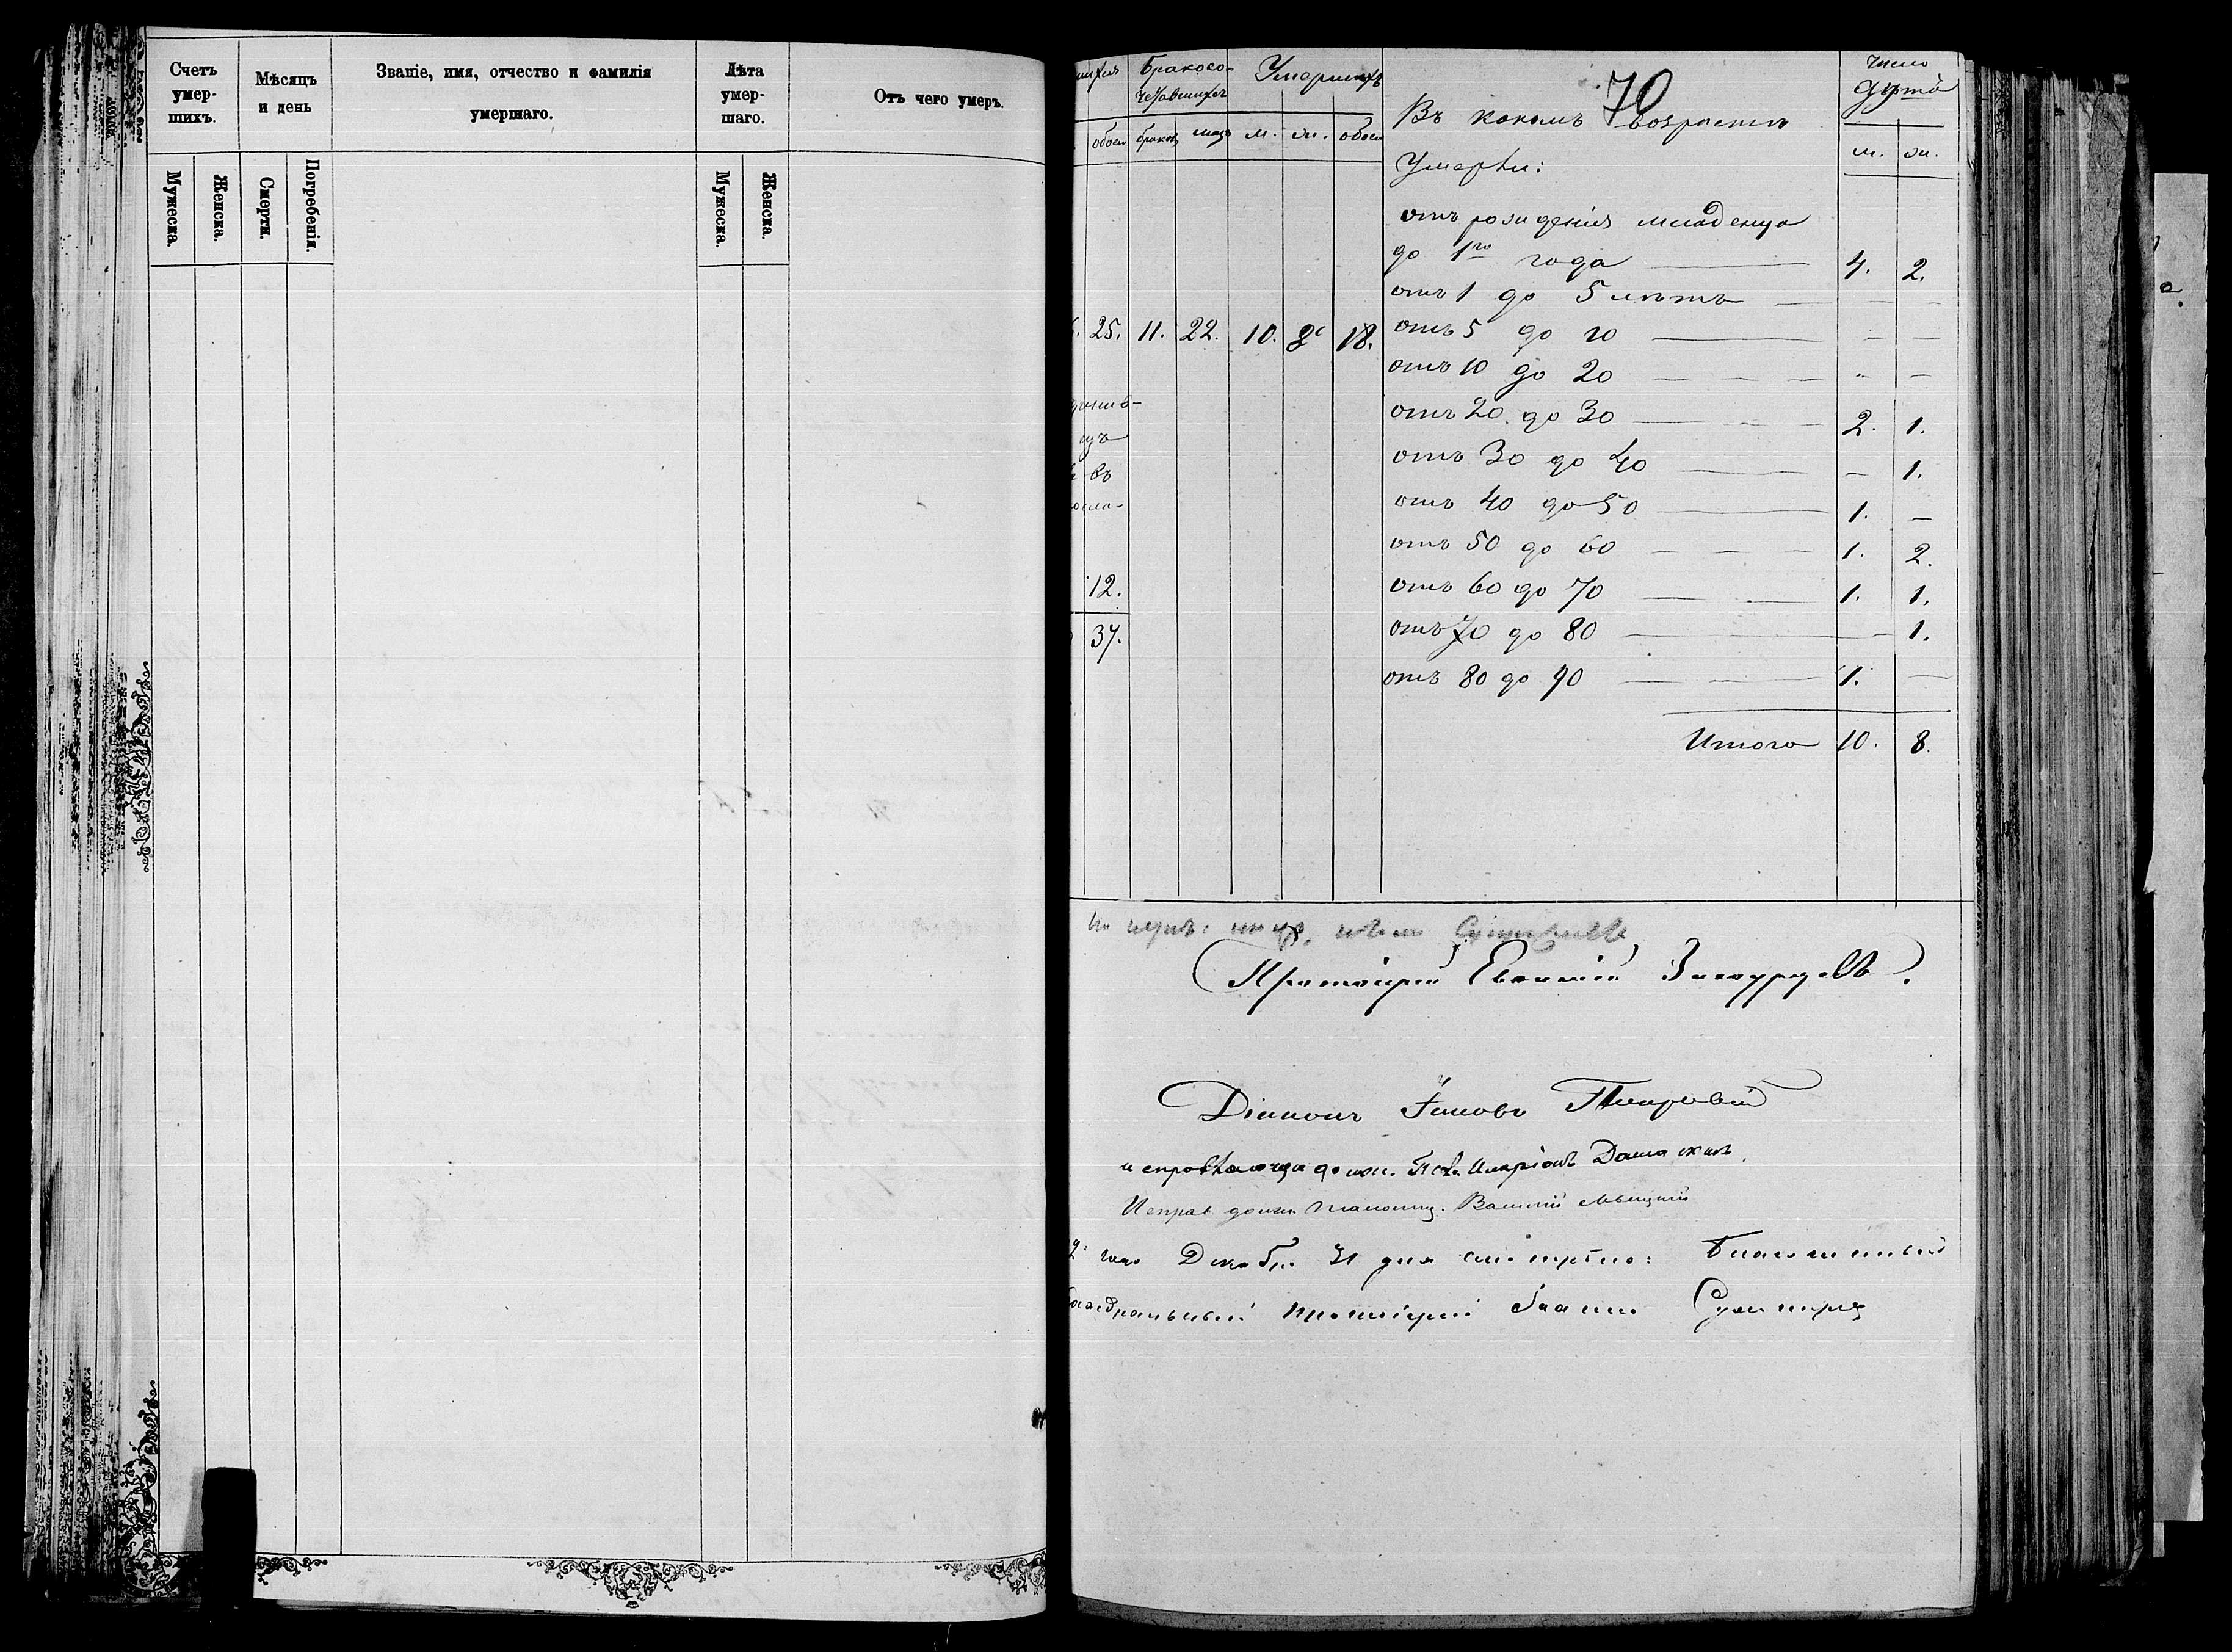 Счетъ умер-шихъ.
Мѣсяцъ и день
Званіе, имя, отчество и фамилія умершаго.
Лѣта умер-шаго.
Отъ чего умеръ.
Мужеска.
Женска.
Смерти.
Погребенія.
Мужеска.
Женска.
Бракосо-
четавшихся
Умершихъ
70
Въ какомъ возрастѣ
Число
душъ
обоего
браковъ
лицъ
м.
ж.
обоего
м.
ж.
Умерли:
отъ рожденія младенца
до 1го года 4. 2.
отъ 1 до 5 лѣтъ — —
25. 11. 22. 10. 8 18. отъ 5 до 10 — —
отъ 10 до 20 — —
отъ 20 до 30 2. 1.
отъ 30 до 40 — 1.
въ
отъ 40 до 50 1. —
отъ 50 до 60 1. 2.
12. отъ 60 до 70 1. 1.
37. отъ 70 до 80 — 1.
отъ 80 до 90 1. —
Итого 10. 8.
Протоіерей Евѳимій
Діаконъ Іаковъ
исправляющій долж. Иларіонъ
Исправ. долж. Василій
Декабр. 31 дня
протоіерей Іоаннъ